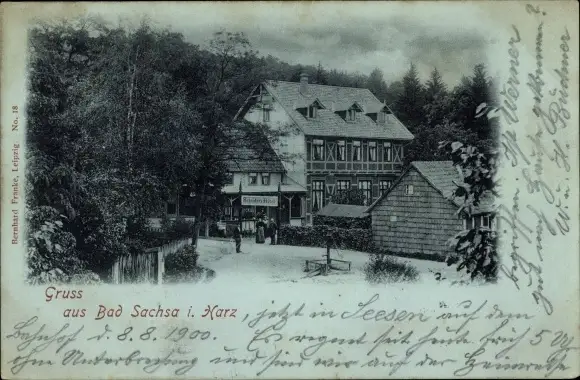 Bernhard Franke, Leipzig No. 18
Gruss
aus Bad Sachsa i. Harz, jetzt in Seesen auf dem
Bahnhof d. 8.8.1900. Es regnet seit heute früh 5 U
ohne Unterbrechung und sind wir auf der Heimreise
begriffen. Ist Werner
gut nach Haus gekommen?
W. u. H. Büchner